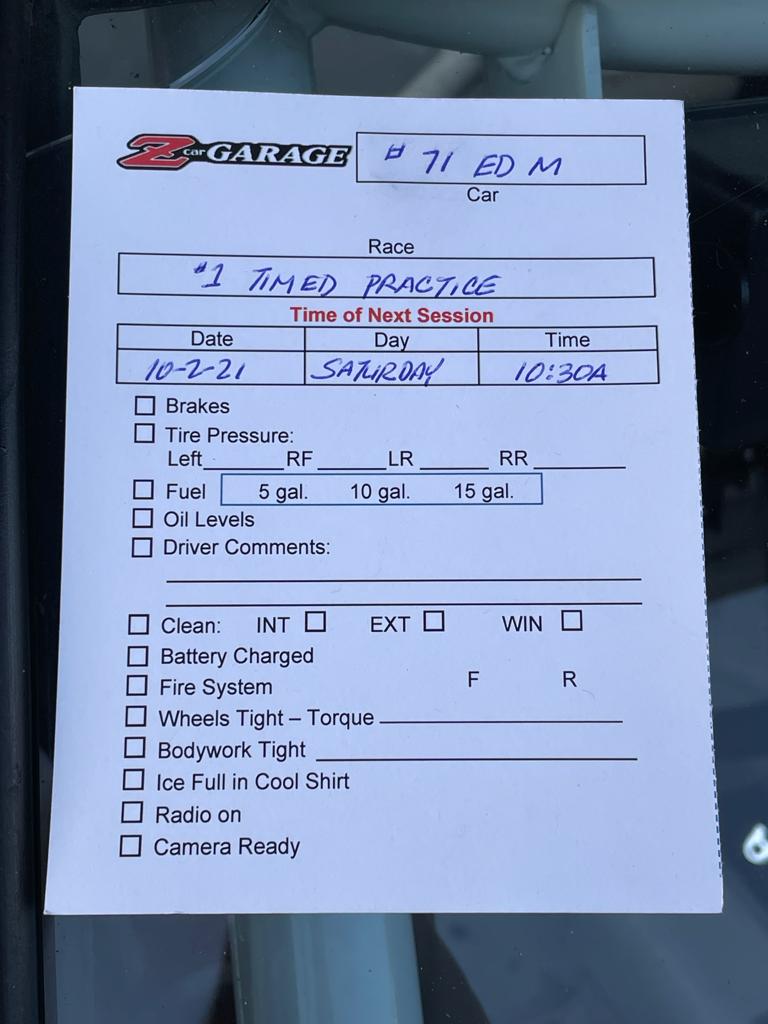 Z car GARAGE
# 71 ED M
Car
Race
#1 TIMED PRACTICE
Time of Next Session
Date Day Time
10-2-21 SATURDAY 10:30A
Brakes
Tire Pressure:
Left________RF_______LR_______ RR_________
Fuel 5 gal. 10 gal. 15 gal.
Oil Levels
Driver Comments:
Clean: INT EXT WIN
Battery Charged
Fire System F R
Wheels Tight – Torque
Bodywork Tight
Ice Full in Cool Shirt
Radio on
Camera Ready